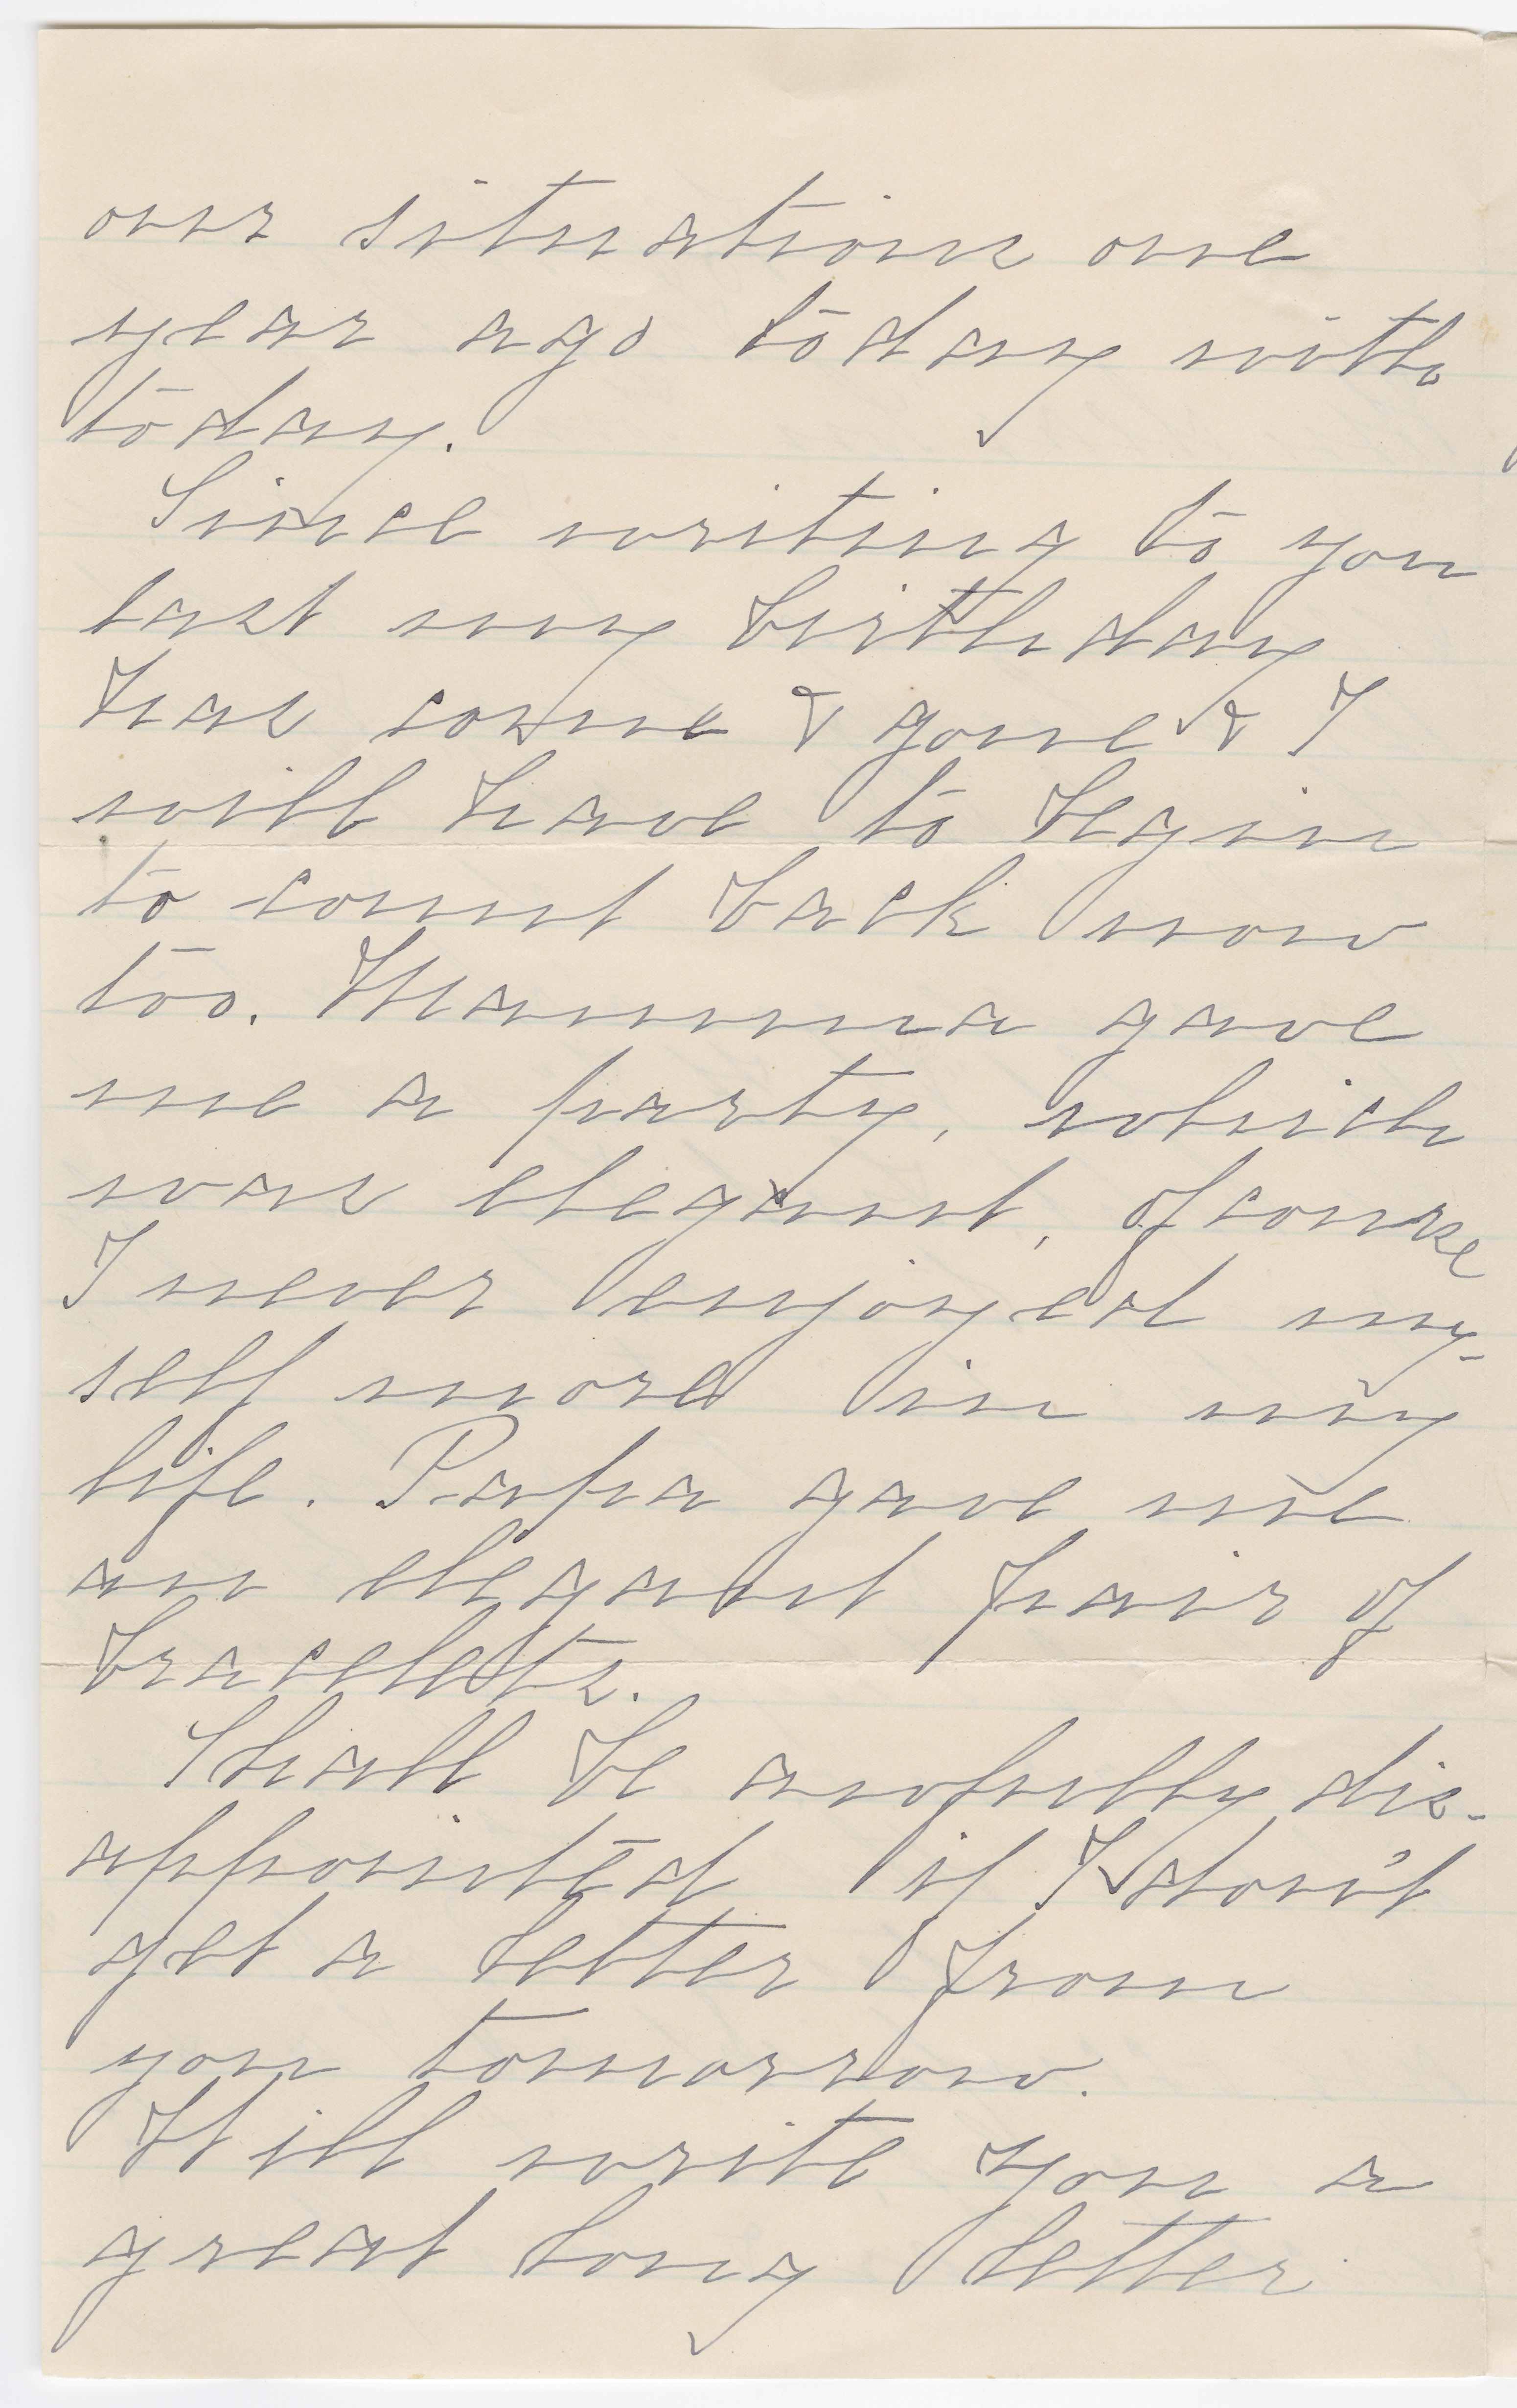 our situations one
year ago today with
today.
Since writing to you
last my birthday
has come & gone & I
will have to begin
to count back now
too. Mamma gave
me a party, which
was elegant, of course
I never enjoyed my-
self more in my
life. Papa gave me
an elegant pair of
bracelets.
Shall be awfully dis-
appointed if I don't
get a letter from
you tomorrow.
Will write you a
great long letter